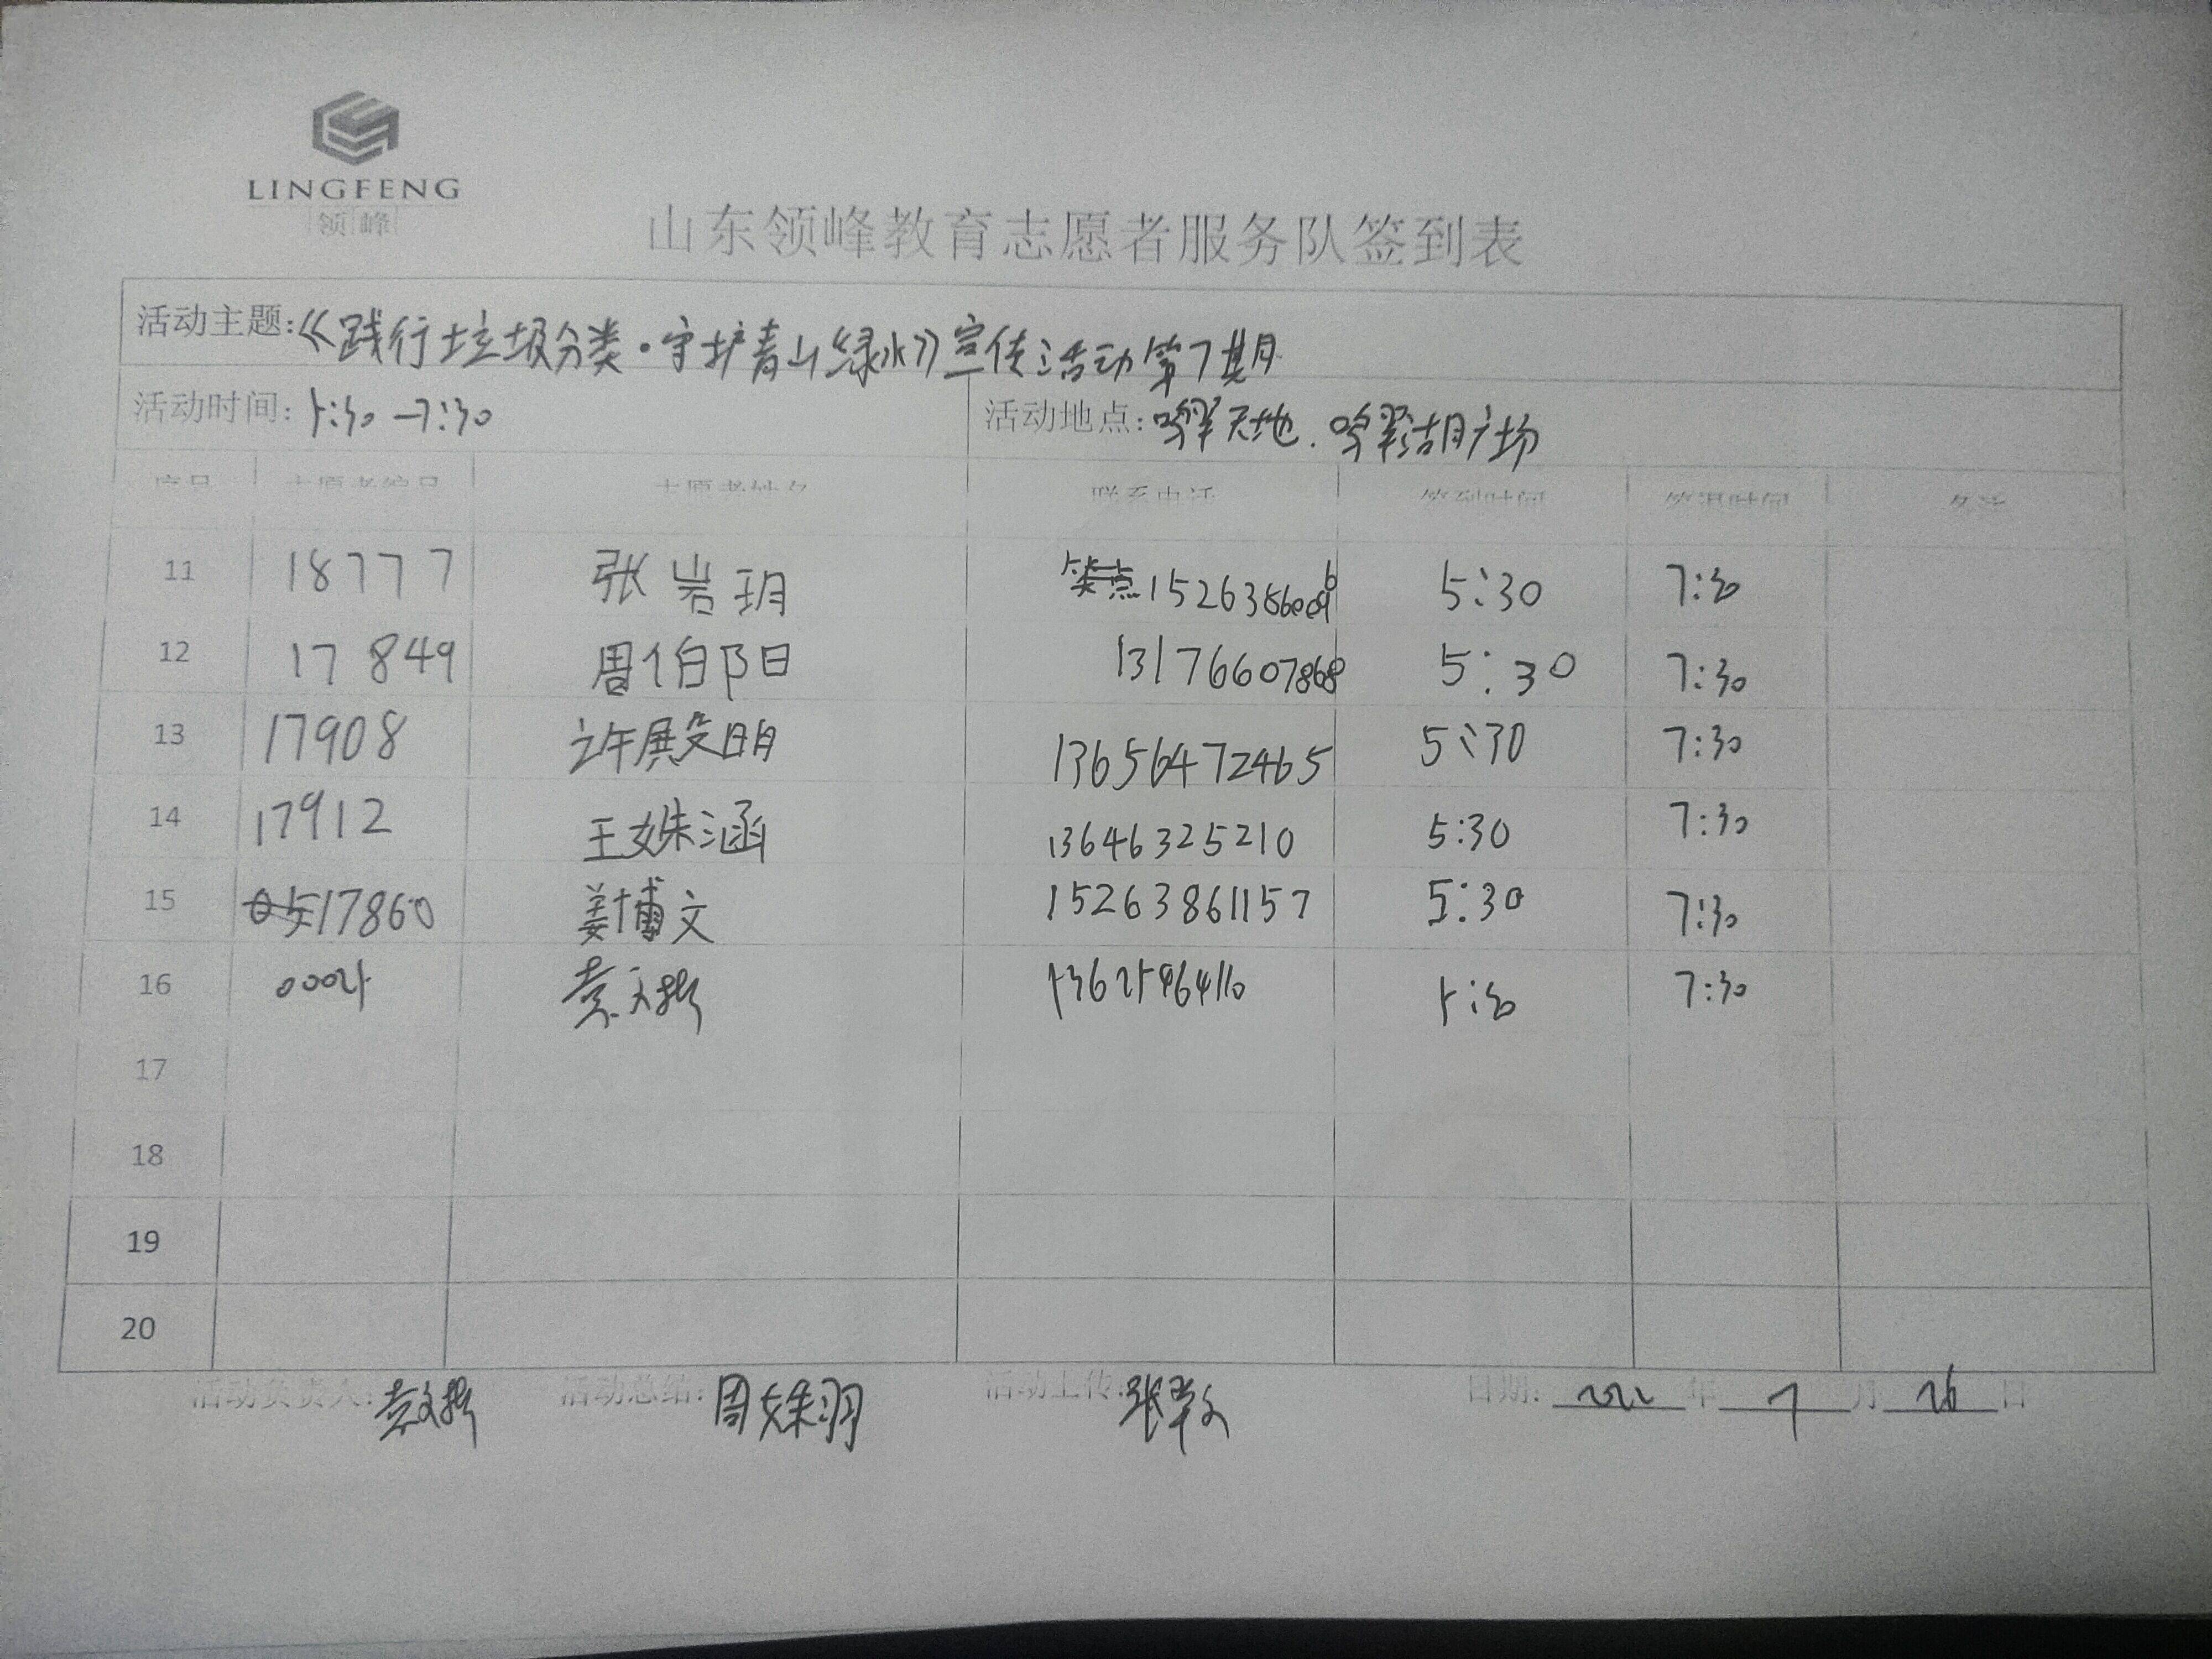 LINGFENG
领峰
山东领峰教育志愿者服务队签到表
活动主题:《践行垃圾分类·守护青山绿水》宣传活动第7期
活动时间: 5:30-7:30 活动地点: 鸣翠天地.鸣翠湖广场
序号 志愿者编号 志愿者姓名 联系电话 签到时间 签退时间 备注
11 18777 张岩玥 5:30 7:30
12 17849 周伯阳 13176607868 5:30 7:30
13 17908 许殿明 13656472465 5:30 7:30
14 17912 王姝涵 13646325210 5:30 7:30
15 17860 姜博文 15263861157 5:30 7:30
16 袁 5:30 7:30
17
18
19
20
活动负责人: 袁 活动总结: 周姝羽 活动上传: 张 日期: 2022 年 7 月 26 日